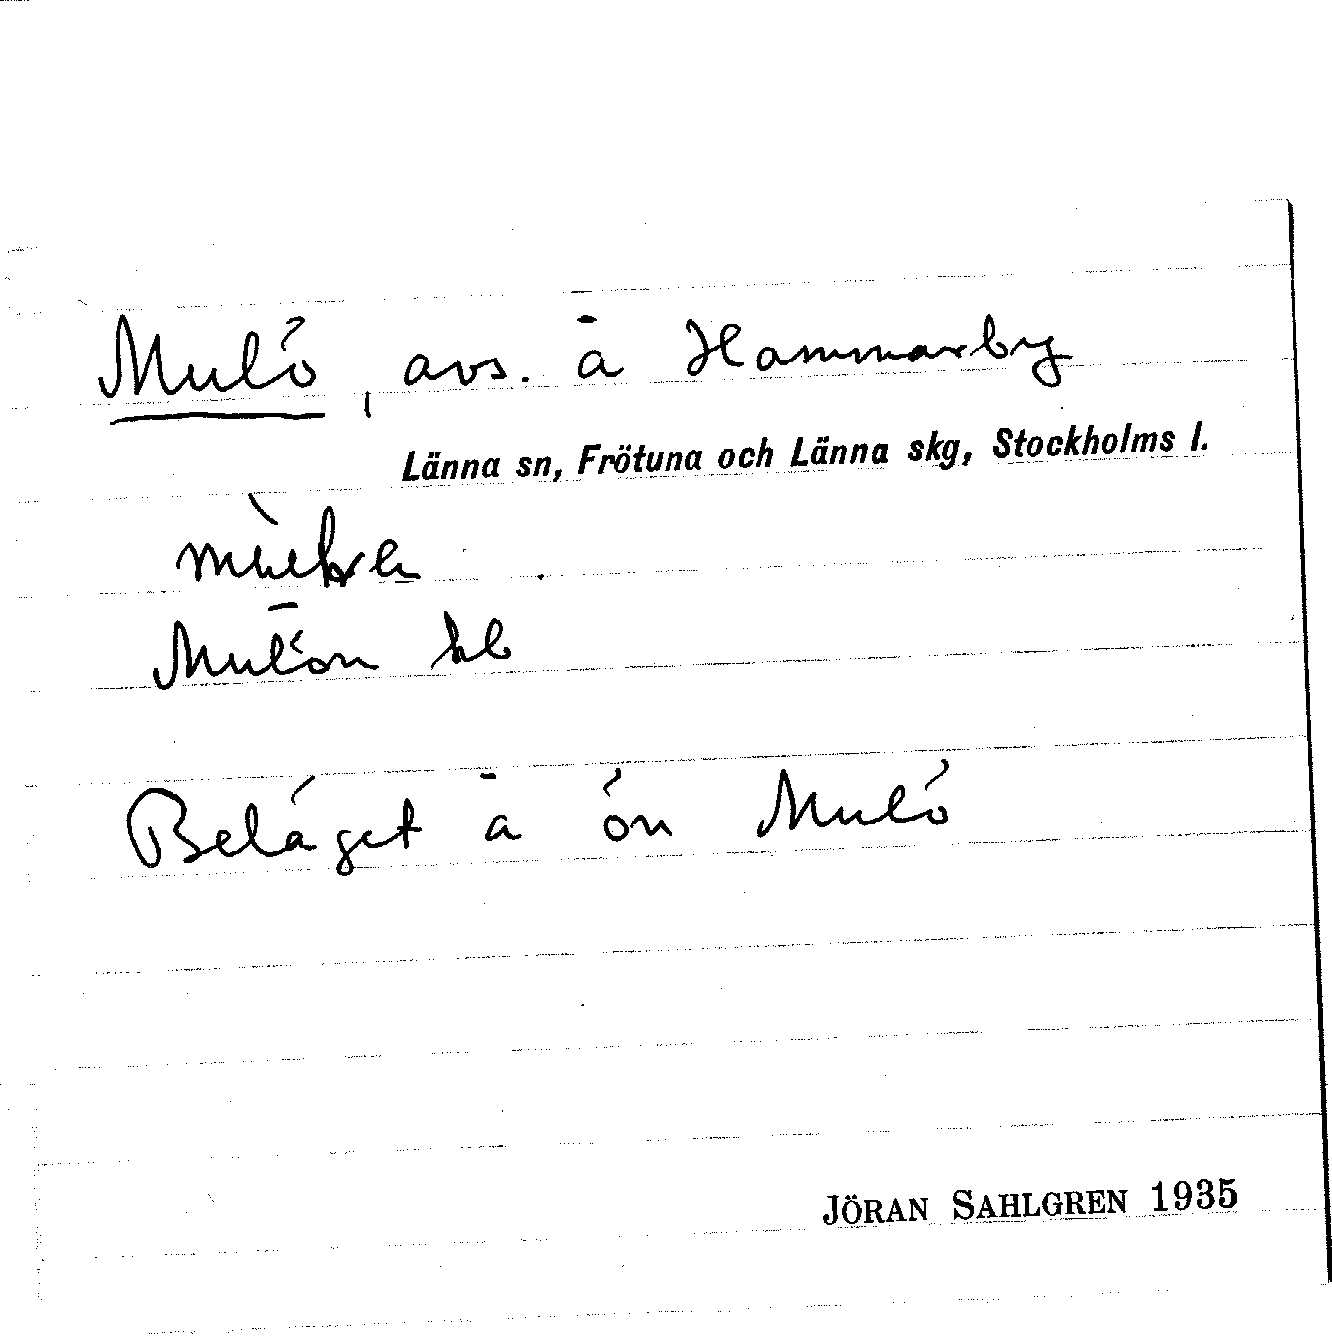 Mulö, avs. å Hammarby
Länna sn, Frötuna och Länna skg, Stockholms l.
Mulön kb
Beläget å ön Mulö
JÖRAN SAHLGREN 1935